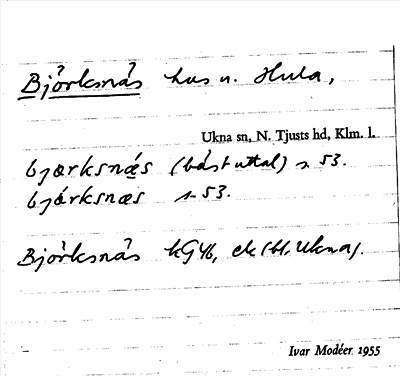 Björksnäs hus u. Hula,
Ukna sn, N. Tjusts hd, Klm. l.
bjœrksnæ̀s (bäst uttal) s 53.
bjœ́rksnæs s 53.
Björksnäs kG46, ek (bl. Ukna).
Ivar Modéer 1955